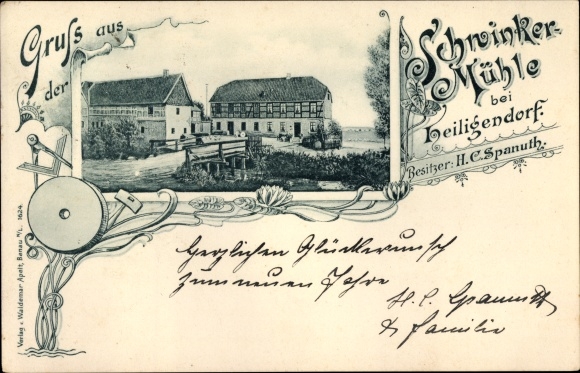 Gruß aus
der
Schwinker-
Mühle
bei
Heiligendorf.
Besitzer: H. C. Spanuth.
Herzlichen Glückwunsch
zum neuen Jahre
H. C. Spanuth
& Familie
Verlag v. Waldemar Apelt, Benau N/L. 1624.